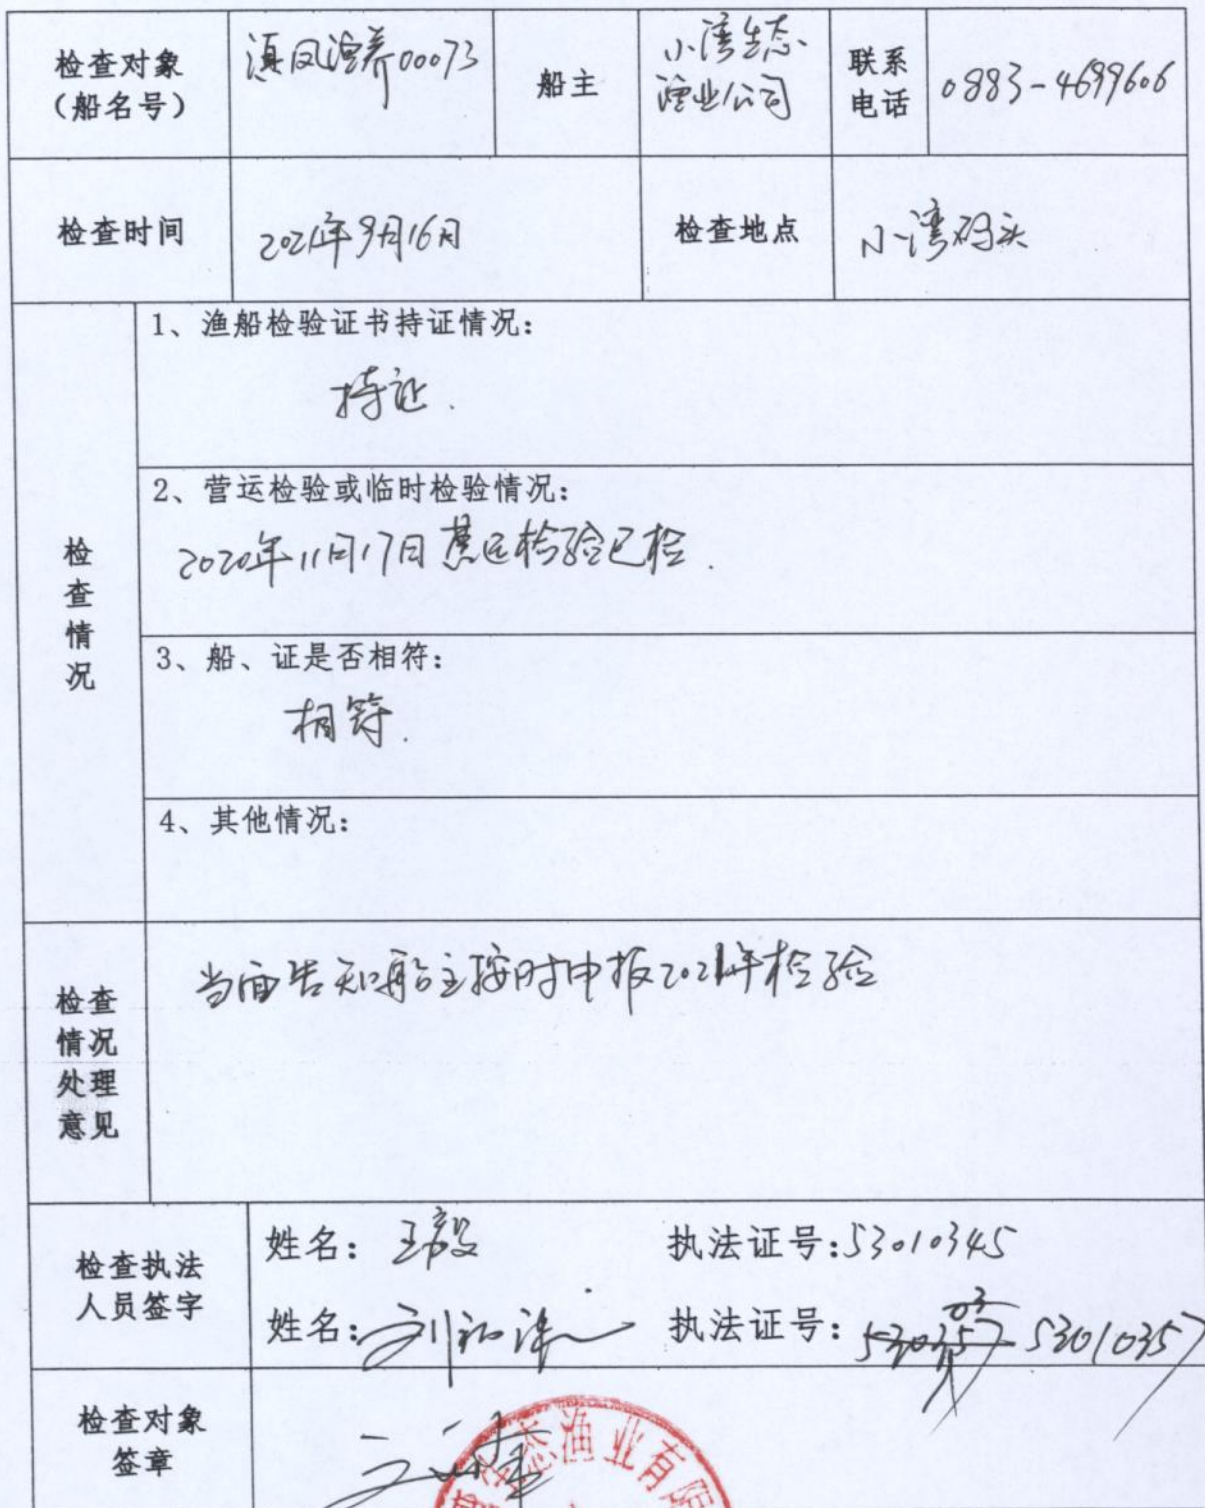 检查对象
（船名号）
滇凤渔养00073
船主
小湾生态
渔业公司
联系
电话
0883-4699606
检查时间
2021年9月16日
检查地点
小湾码头
检查情况
1、渔船检验证书持证情况：
持证.
2、营运检验或临时检验情况：
2020年11月17日营运检验已检.
3、船、证是否相符：
相符.
4、其他情况：
检查
情况
处理
意见
当面告知船主按时申报2021年检验
检查执法
人员签字
姓名：王毅
执法证号：53010345
姓名：刘
执法证号：53010357
检查对象
签章
生态渔业有限